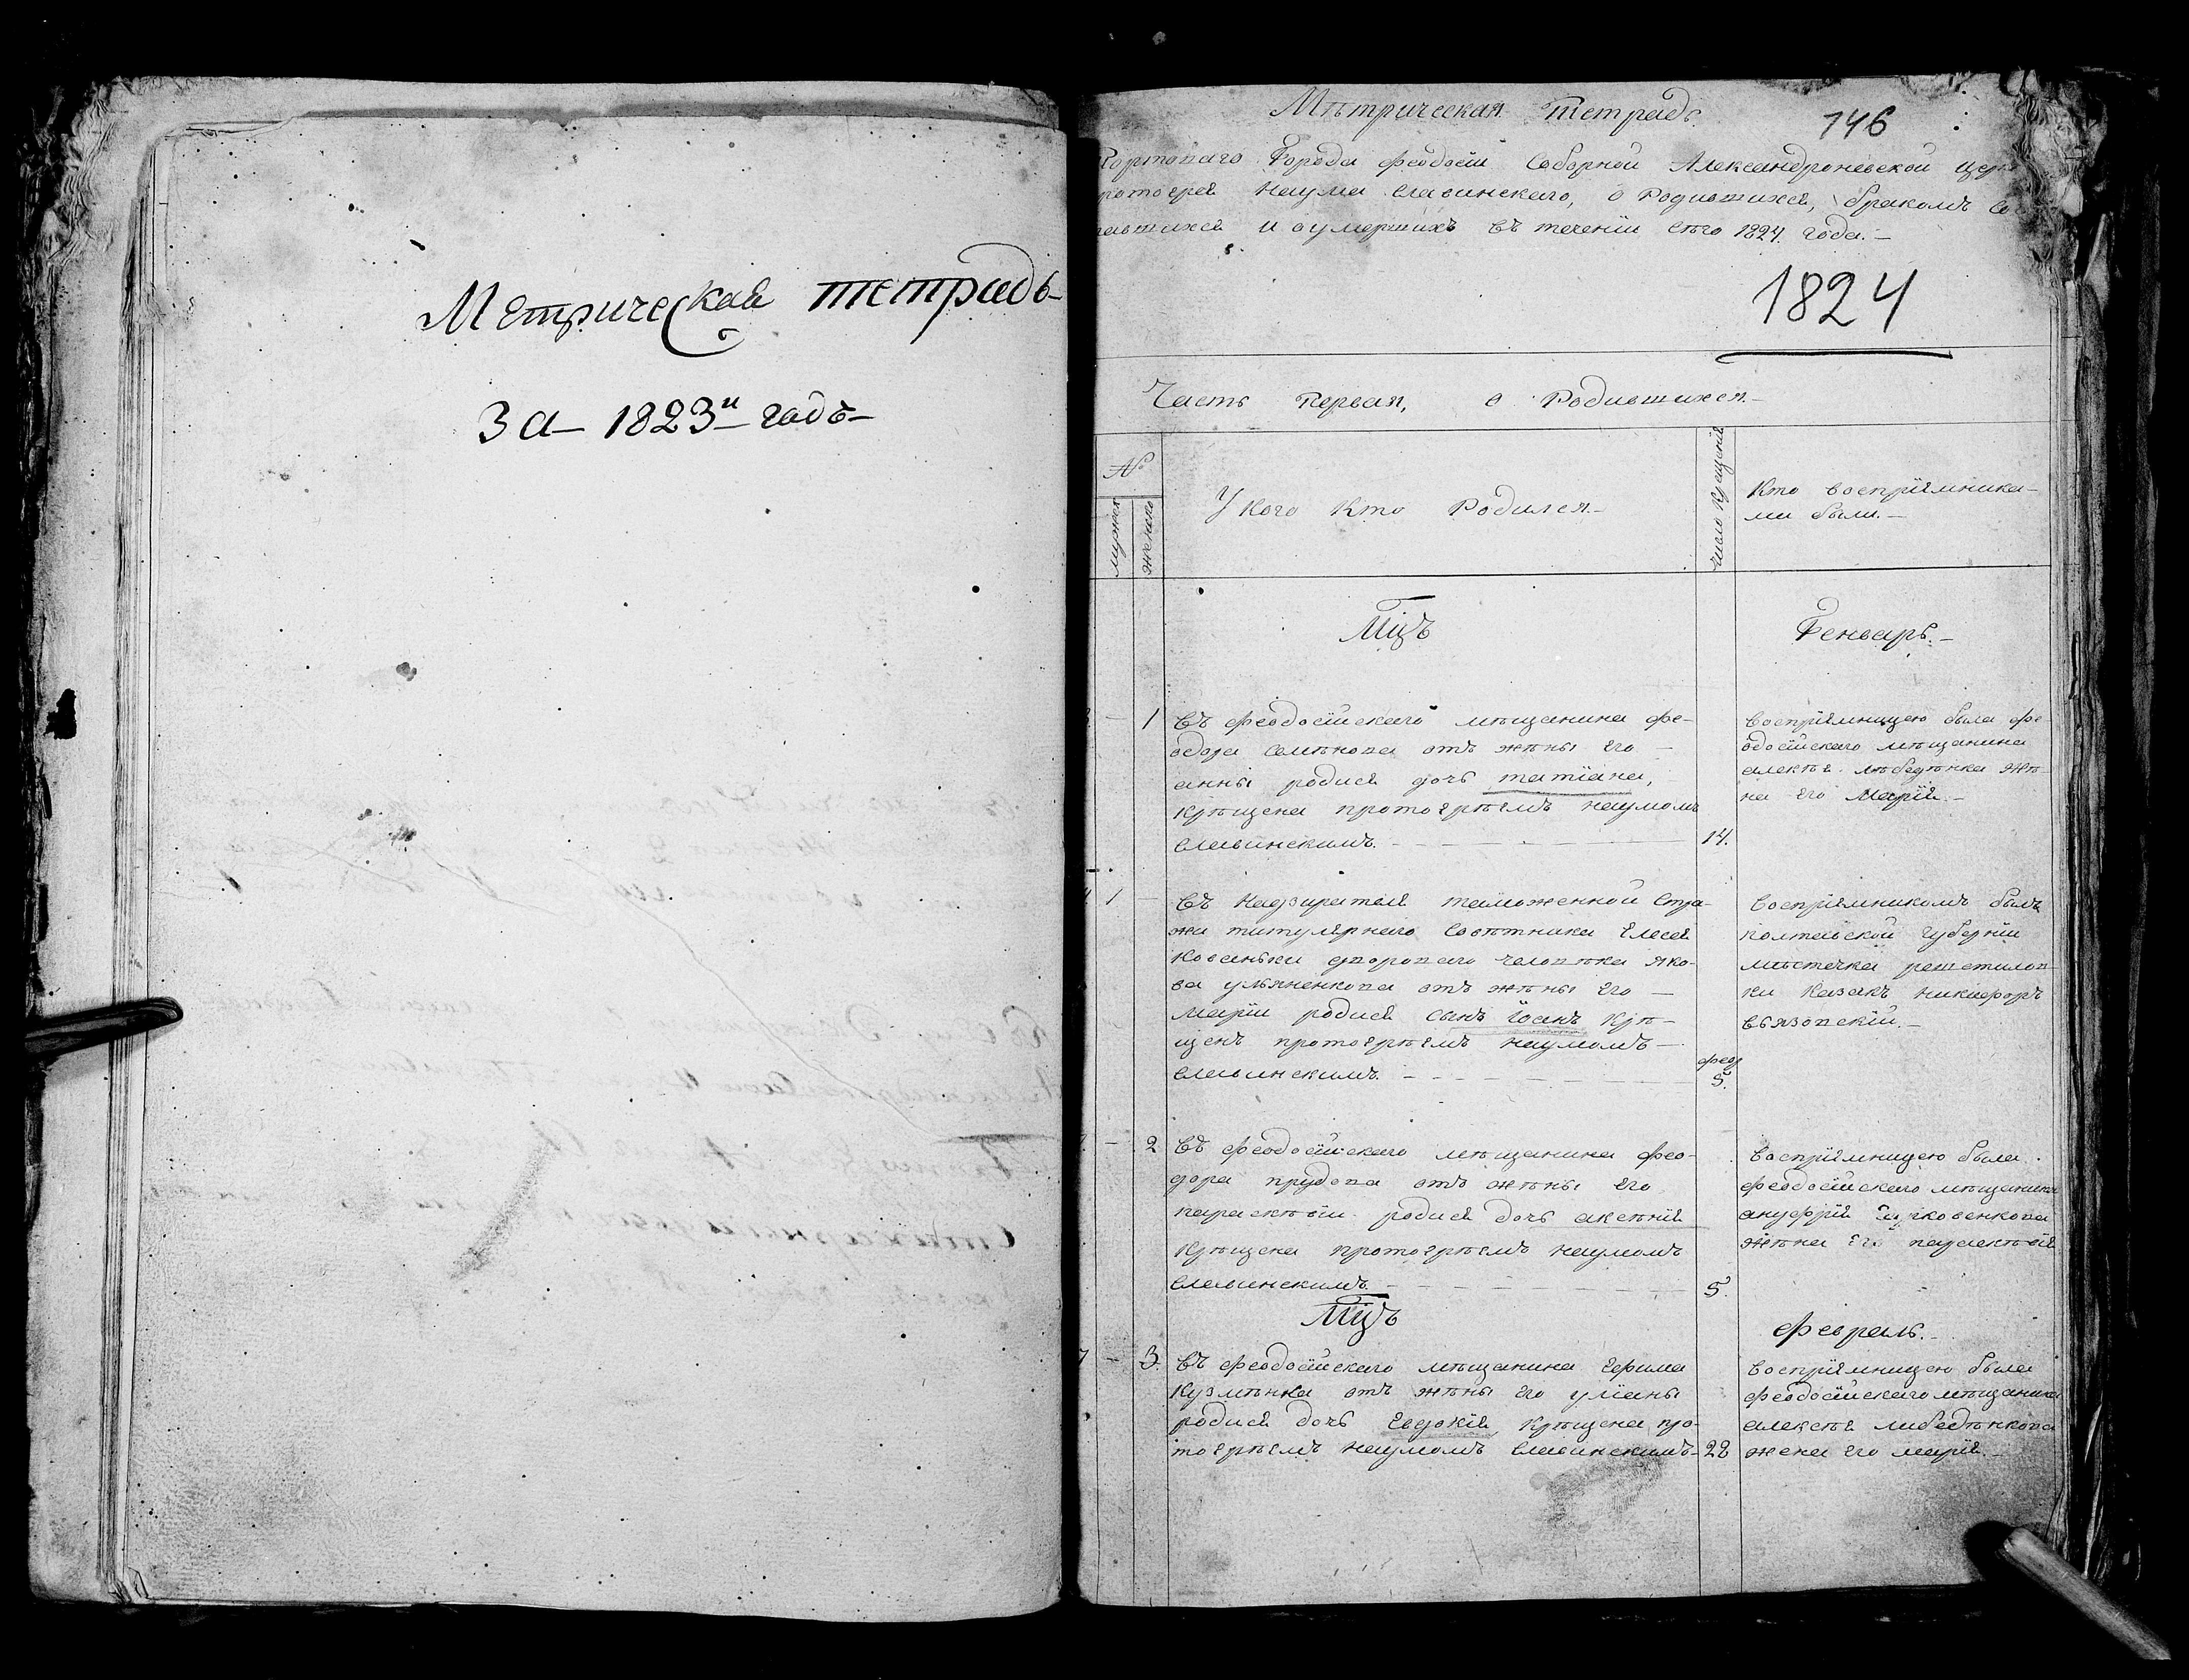 Метрическая тетрадь
За 1823й годъ
Мѣтрическая Тетрадь
146
Портоваго Города Феодосіи Соборной Александроневской Церк
ротоерея Наума Славинскаго, о Родившихся, бракомъ Соч
тавшихся и оумершихъ въ теченіи сѣго 1824 года.
1824
Часть Первая, о Родившихся.
№
мужеск
женско
У Кого Кто Родился.
Число Крещенія
Кто воспріемника-
ми были.
Мцъ
Генварь.
1
въ феодосійскаго мѣщанина фе-
одора Семѣнова отъ жѣны его
анны родися дочь татіана,
крѣщена протоерѣемъ наумомъ
Славинскимъ.
14.
воспріемницею была фе-
одосійскаго мѣщанина
алексѣя лѣбедѣнка жѣ-
на его Марія.
1
въ Надзирателя таможенной Стра-
жи титулярнаго Совѣтника Елесея
Косеньки двороваго человѣка яко-
ва ульяненкова отъ жѣны его
маріи родися сынъ іоанъ крѣ-
щенъ протоерѣемъ наумомъ
Славинскимъ.
5.
воспріемникомъ былъ
полтавской Губерніи
мѣстечка решетилов-
ки Казакъ никифоръ
вязовскій.
2
въ феодосійскаго мѣщанина фео-
дора прудова отъ жѣны его
параскѣвіи родися дочь аксѣнія
крѣщена протоерѣемъ наумомъ
Славинскимъ.
5.
воспріемницею была
феодосійскаго мѣщанина
ануфрія
жѣна его параскѣвія
Мцъ
февраль.
3.
въ феодосійскаго мѣщанина Ефима
Кузмѣнка отъ жѣны его уліаны
родися дочь Евдокія, крѣщена про-
тоерѣемъ наумомъ Славинскимъ
22
воспріемницею была
феодосійскаго мѣщанина
алексѣя либедѣнкова
жена его марія.